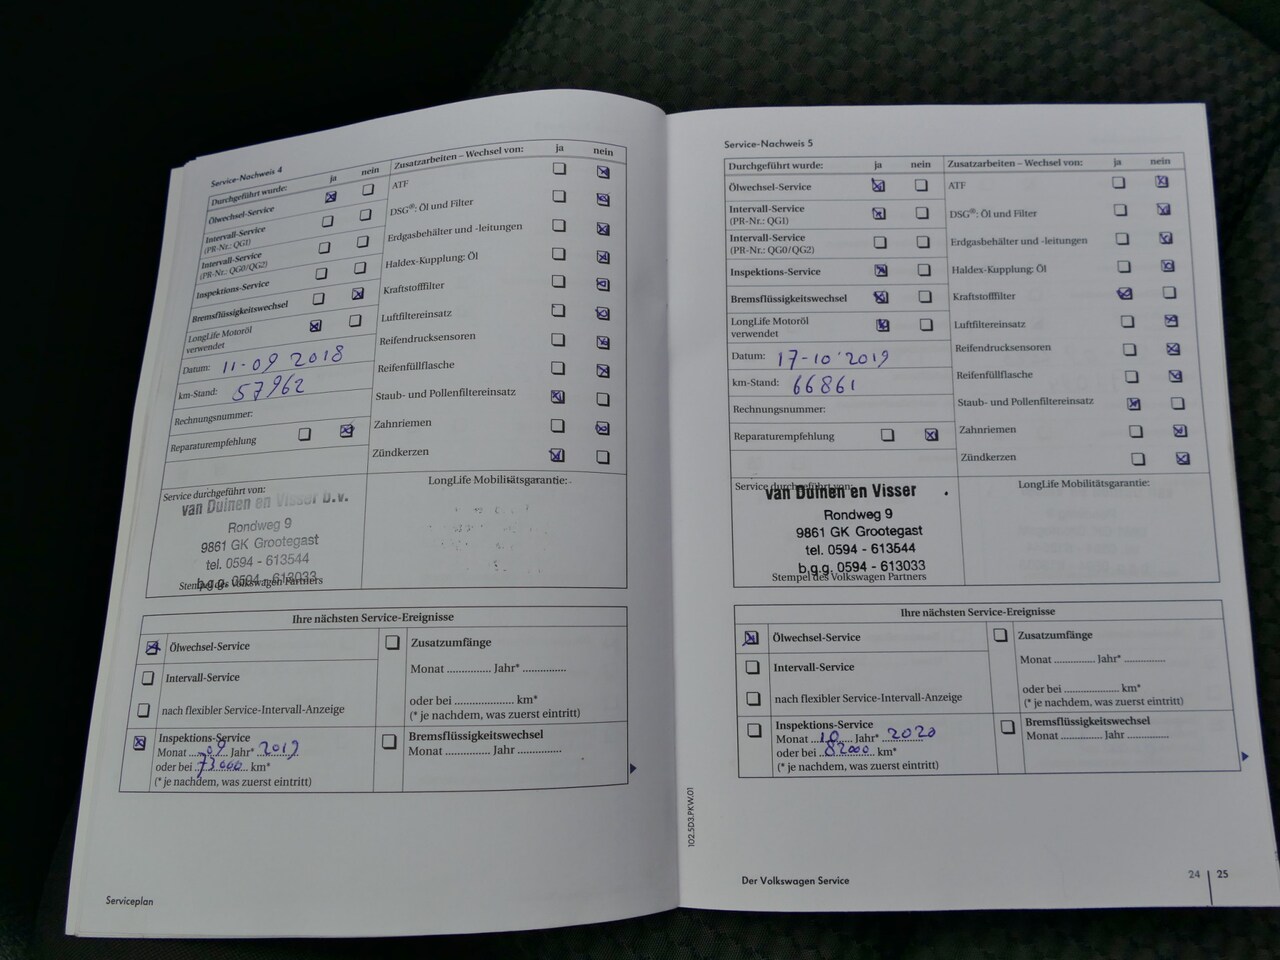 Service-Nachweis 4
Durchgeführt wurde: ja nein
Ölwechsel-Service
Intervall-Service
(PR-Nr.: QG1)
Intervall-Service
(PR-Nr.: QG0/QG2)
Inspektions-Service
Bremsflüssigkeitswechsel
LongLife Motoröl
verwendet
Datum: 11-09 2018
km-Stand: 57962
Rechnungsnummer:
Reparaturempfehlung
Zusatzarbeiten – Wechsel von: ja nein
ATF
DSG®: Öl und Filter
Erdgasbehälter und -leitungen
Haldex-Kupplung: Öl
Kraftstofffilter
Luftfiltereinsatz
Reifendrucksensoren
Reifenfüllflasche
Staub- und Pollenfiltereinsatz
Zahnriemen
Zündkerzen
Service durchgeführt von:
van Duinen en Visser b.v.
Rondweg 9
9861 GK Grootegast
tel. 0594 - 613544
b.g.g. 0594 - 613033
Stempel des Volkswagen Partners
LongLife Mobilitätsgarantie:
Ihre nächsten Service-Ereignisse
Ölwechsel-Service
Intervall-Service
nach flexibler Service-Intervall-Anzeige
Inspektions-Service
Monat 09 Jahr* 2019
oder bei 73000 km*
(* je nachdem, was zuerst eintritt)
Zusatzumfänge
Monat ............... Jahr* ...............
oder bei ..................... km*
(* je nachdem, was zuerst eintritt)
Bremsflüssigkeitswechsel
Monat ............... Jahr ...............
Serviceplan
Service-Nachweis 5
Durchgeführt wurde: ja nein
Ölwechsel-Service
Intervall-Service
(PR-Nr.: QG1)
Intervall-Service
(PR-Nr.: QG0/QG2)
Inspektions-Service
Bremsflüssigkeitswechsel
LongLife Motoröl
verwendet
Datum: 17-10-2019
km-Stand: 66861
Rechnungsnummer:
Reparaturempfehlung
Zusatzarbeiten – Wechsel von: ja nein
ATF
DSG®: Öl und Filter
Erdgasbehälter und -leitungen
Haldex-Kupplung: Öl
Kraftstofffilter
Luftfiltereinsatz
Reifendrucksensoren
Reifenfüllflasche
Staub- und Pollenfiltereinsatz
Zahnriemen
Zündkerzen
Service durchgeführt von:
van Duinen en Visser
Rondweg 9
9861 GK Grootegast
tel. 0594 - 613544
b.g.g. 0594 - 613033
Stempel des Volkswagen Partners
LongLife Mobilitätsgarantie:
Ihre nächsten Service-Ereignisse
Ölwechsel-Service
Intervall-Service
nach flexibler Service-Intervall-Anzeige
Inspektions-Service
Monat 10 Jahr* 2020
oder bei 82000 km*
(* je nachdem, was zuerst eintritt)
Zusatzumfänge
Monat ............... Jahr* ...............
oder bei ..................... km*
(* je nachdem, was zuerst eintritt)
Bremsflüssigkeitswechsel
Monat ............... Jahr* ...............
102.5D3.PKW.01
Der Volkswagen Service
24 25